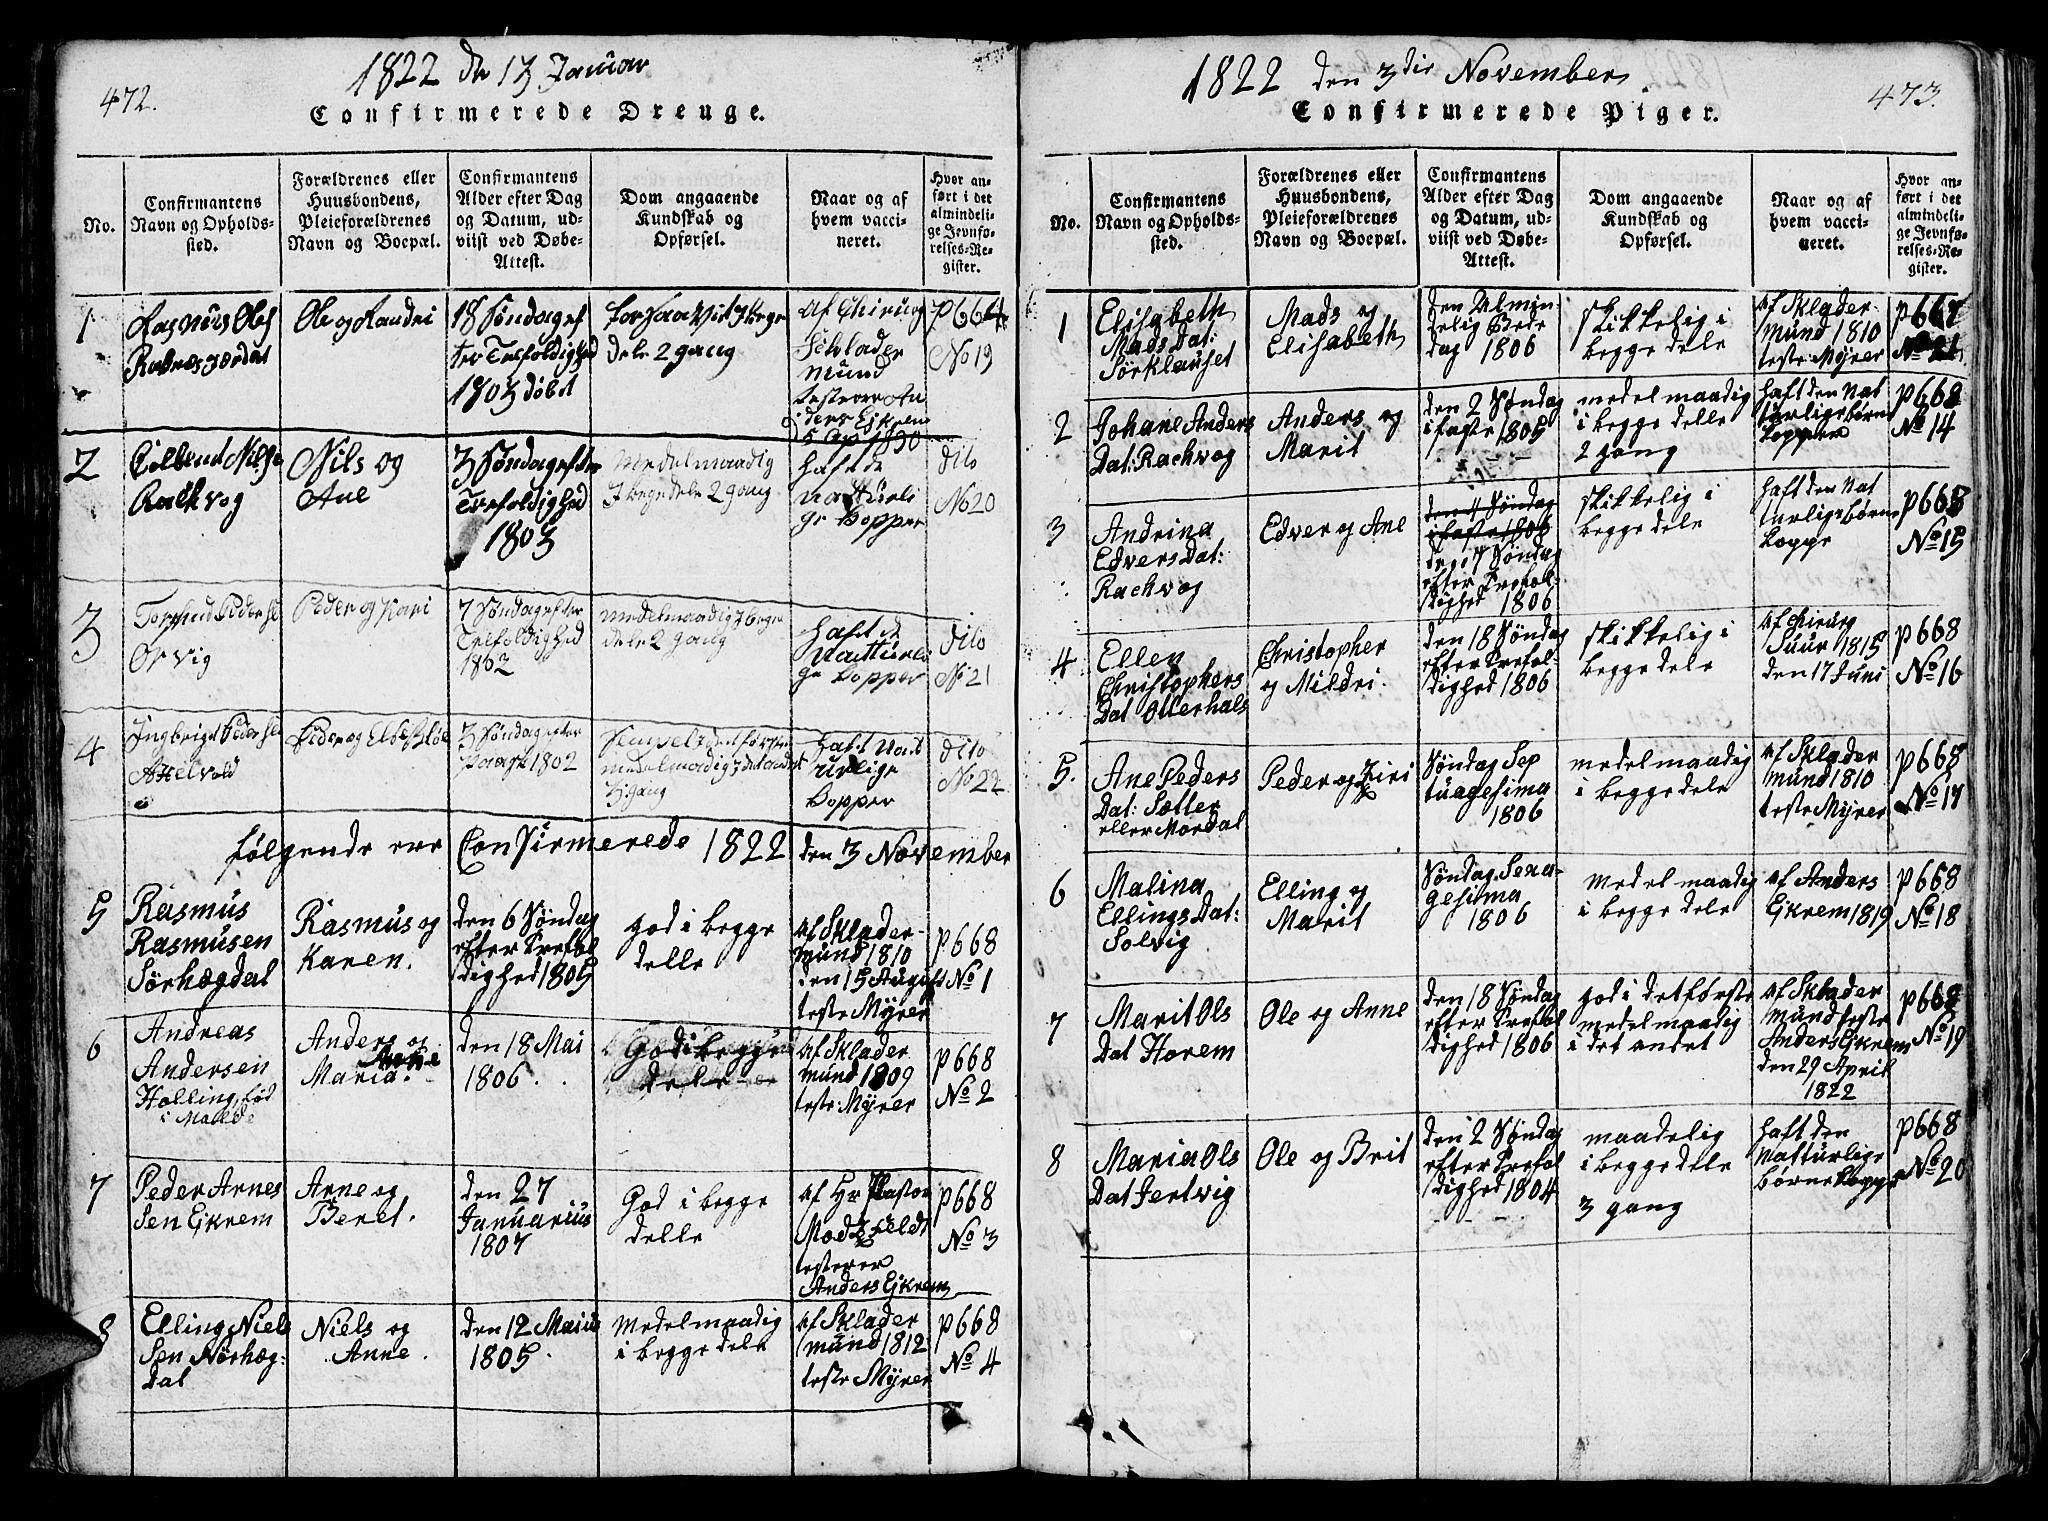 472.
1822 d 13 Januar
Confirmerede Drenge.
No.
Confirmantens
Navn og Opholds-
sted.
Forældrenes eller
Huusbondens,
Pleieforældrenes
Navn og Boepæl.
Confirmantens
Alder efter Dag
og Datum, ud-
viist ved Døbe-
Attest.
Dom angaaende
Kundskab og
Opførsel.
Naar og af
hvem vacci-
neret.
Hvor an-
ført i det
almindeli-
ge Jevnfø-
relses-Re-
gister.
1
Ole og Raudri
18 Søndag ef
ter Trefoldighed
1803 døbt
dele 2 gang
Af Chirurg
Schlader
mund
ders Ejkrem
P 664
No 19
2
Nils og
Ane
3 Søndag efter
Trefoldighed
1803
Medelmaadig
I begedele 2 gang
Haft de
natturli
ge Kopper
Dito
No 20
3
Peder og Kari
7 Søndag efter
Trefoldighed
Medelmaadig I bege
dele 2 gang
Haft de
natturli
ge Kopper
Dito
No 21
4
3 Søndag efter
Paask 1802
3 gang
Haft Nat
urlige
Kopper
Dito
No 22
følgende ere Confirmerede 1822 den 3 November
5
Rasmus
Rasmusen
Sørhægdal
Rasmus og
Karen.
den 6 Søndag
efter Trefol
dighed 1805
god i begge
delle
af Sklader-
mund 1810
den 15 August
teste Myrer
p 668
No 1
6
Andreas
Andersen
Holling, fød
i Molde
Anders og
Maria.
den 18 Mai
1806.
God i begge
dele
af Sklader
mund 1809
teste: Myrer
p 668
No 2
7
Peder Arnes
Sen Ejkrem
Arne og
Beret.
den 27
Januarius
1807
God i begge
delle
af Hr Pastor
Modzfeldt
testerer
Anders Ejkrem
p 668
No 3
8
Elling Niels
Sen Nørhæg:
Dal
Niels og
Anne.
den 12 Maius
1805.
medelmaadig
i begge dele
af Sklader
mund 1812
teste Myrer
p 668
No 4
1822 den 3die November
473.
Confirmerede Piger.
No.
Confirmantens
Navn og Opholds-
sted.
Forældrenes eller
Huusbondens,
Pleieforældrenes
Navn og Boepæl.
Confirmantens
Alder efter Dag
og Datum, ud-
viist ved Døbe-
Attest.
Dom angaaende
Kundskab og
Opførsel.
Naar og af
hvem vacci-
neret.
Hvor an-
ført i det
almindeli-
ge Jevnfø-
relses-Re-
gister.
1
Elisabeth
Mads Dat:
Sørklauset
Mads og
Elisabeth
den Almin
delig Bede
dag 1806
skikkelig i
begge dele
af Sklader-
mund 1810
teste: Myrer
2
Johane Anders
Dat: Rachvog
Anders og
Marit
den 2 Søndag
i faste 1805
medelmaadig
i begge delle
2 gang
haft den Nat
turlige børne
kopper
p 668
No 14
3
Andrina
Edvers Dat:
Rachvog
Edver og Ane
den 4 Søndag
i faste 1806
Søndag
efter Trefol-
dighed 1806
skikkelig i
begge dele
haft den Nat
turlige børne
koppe
p 668
No 15
4
Ellen
Christophers
Dat Otterhals
Christopher
og Mildri.
den 18 Søndag
efter Trefol-
dighed 1806
skikkelig i
begge dele
af Chirurg
Suur 1815
den 17 Juni
p 668
No 16
5.
Ane Peders
Dat: Sætter
eller Mordal
Peder og Ziri
Søndag Sep
tuagesima
1806
medelmaadig
i begge dele
af Sklader
mund 1810
teste Myrer
p 668
No 17
6
Malina
Ellings Dat:
Solvig
Elling og
Marit
Søndag Sexa-
gesima
1806
medelmaadig
i begge dele
af Anders
Ejkrem 1819
p 668
No 18
7
Marit Ols
Dat Horem
Ole og Anne
den 18 Søndag
efter Trefol
dighed 1806
god i det første
medelmaadig
i det andet
af Sklader
mund teste
Anders Ejkrem
den 29 April
1822
p 668
No 19
8
Maria Ols
Dat Jertvig
Ole og Brit
den 2 Søndag
efter Trefol
dighed 1804
maadelig
i begge dele
3 gang
haft den
Natturlige
børne koppe
p 668
No 20